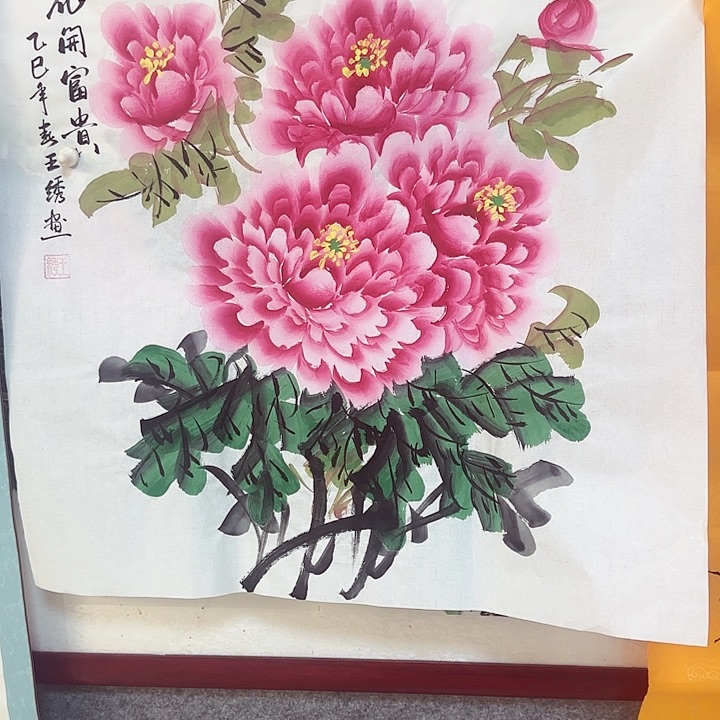 花開富貴
乙巳年春王绣画